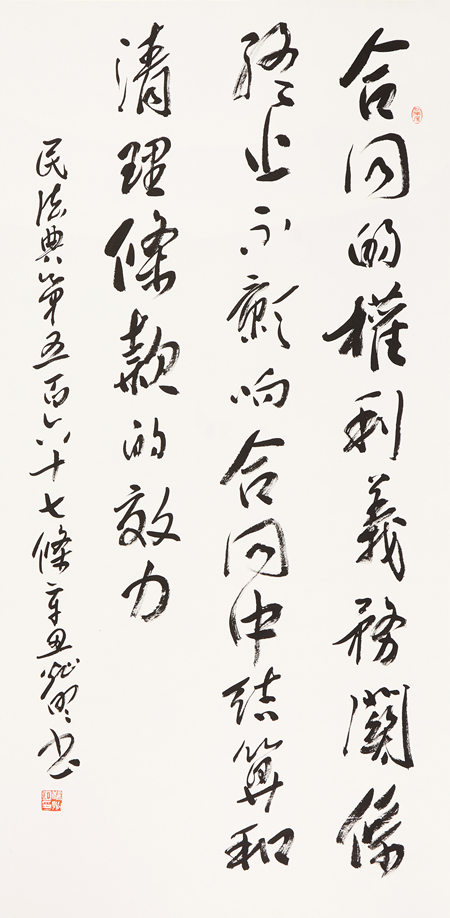 合同的權利義務關係
終止不影响合同中結算和
清理條款的效力
民法典第五百六十七條辛丑明书